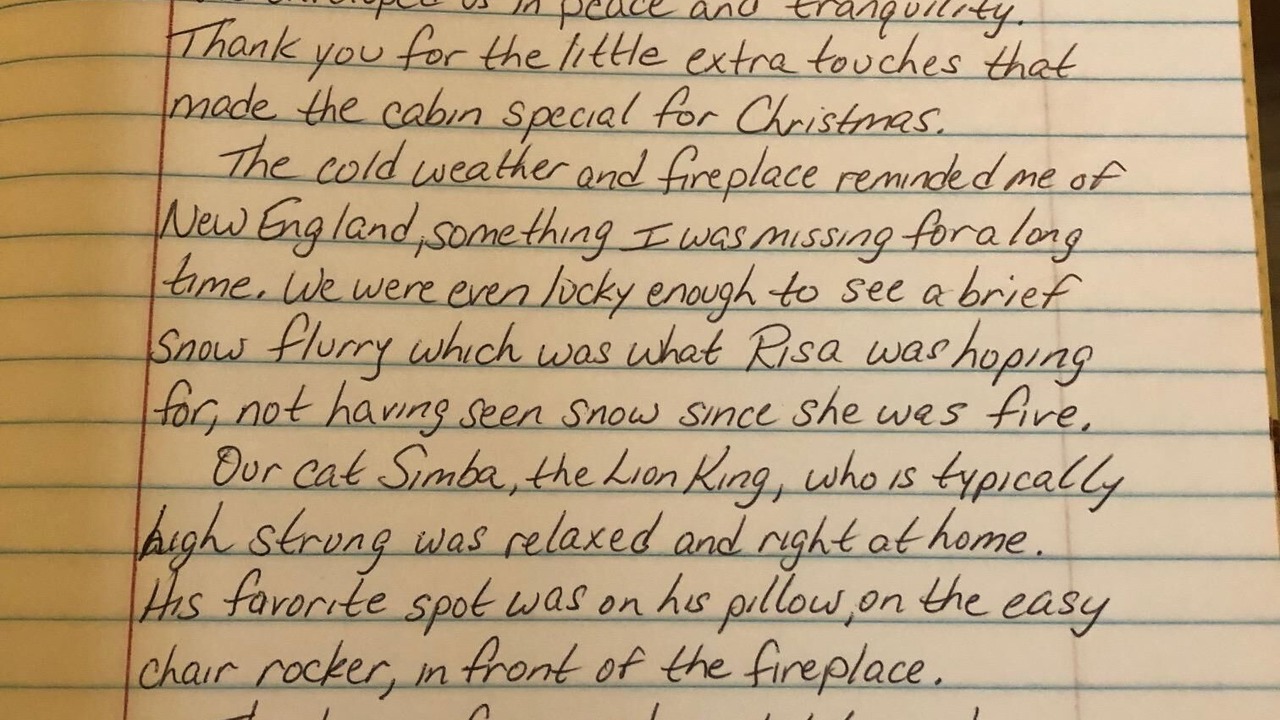 us in peace and tranquility.
Thank you for the little extra touches that
made the cabin special for Christmas.
The cold weather and fireplace reminded me of
New England, something I was missing for a long
time. We were even lucky enough to see a brief
snow flurry which was what Risa was hoping
for, not having seen snow since she was five.
Our cat Simba, the Lion King, who is typically
high strung was relaxed and right at home.
His favorite spot was on his pillow, on the easy
chair rocker, in front of the fireplace.